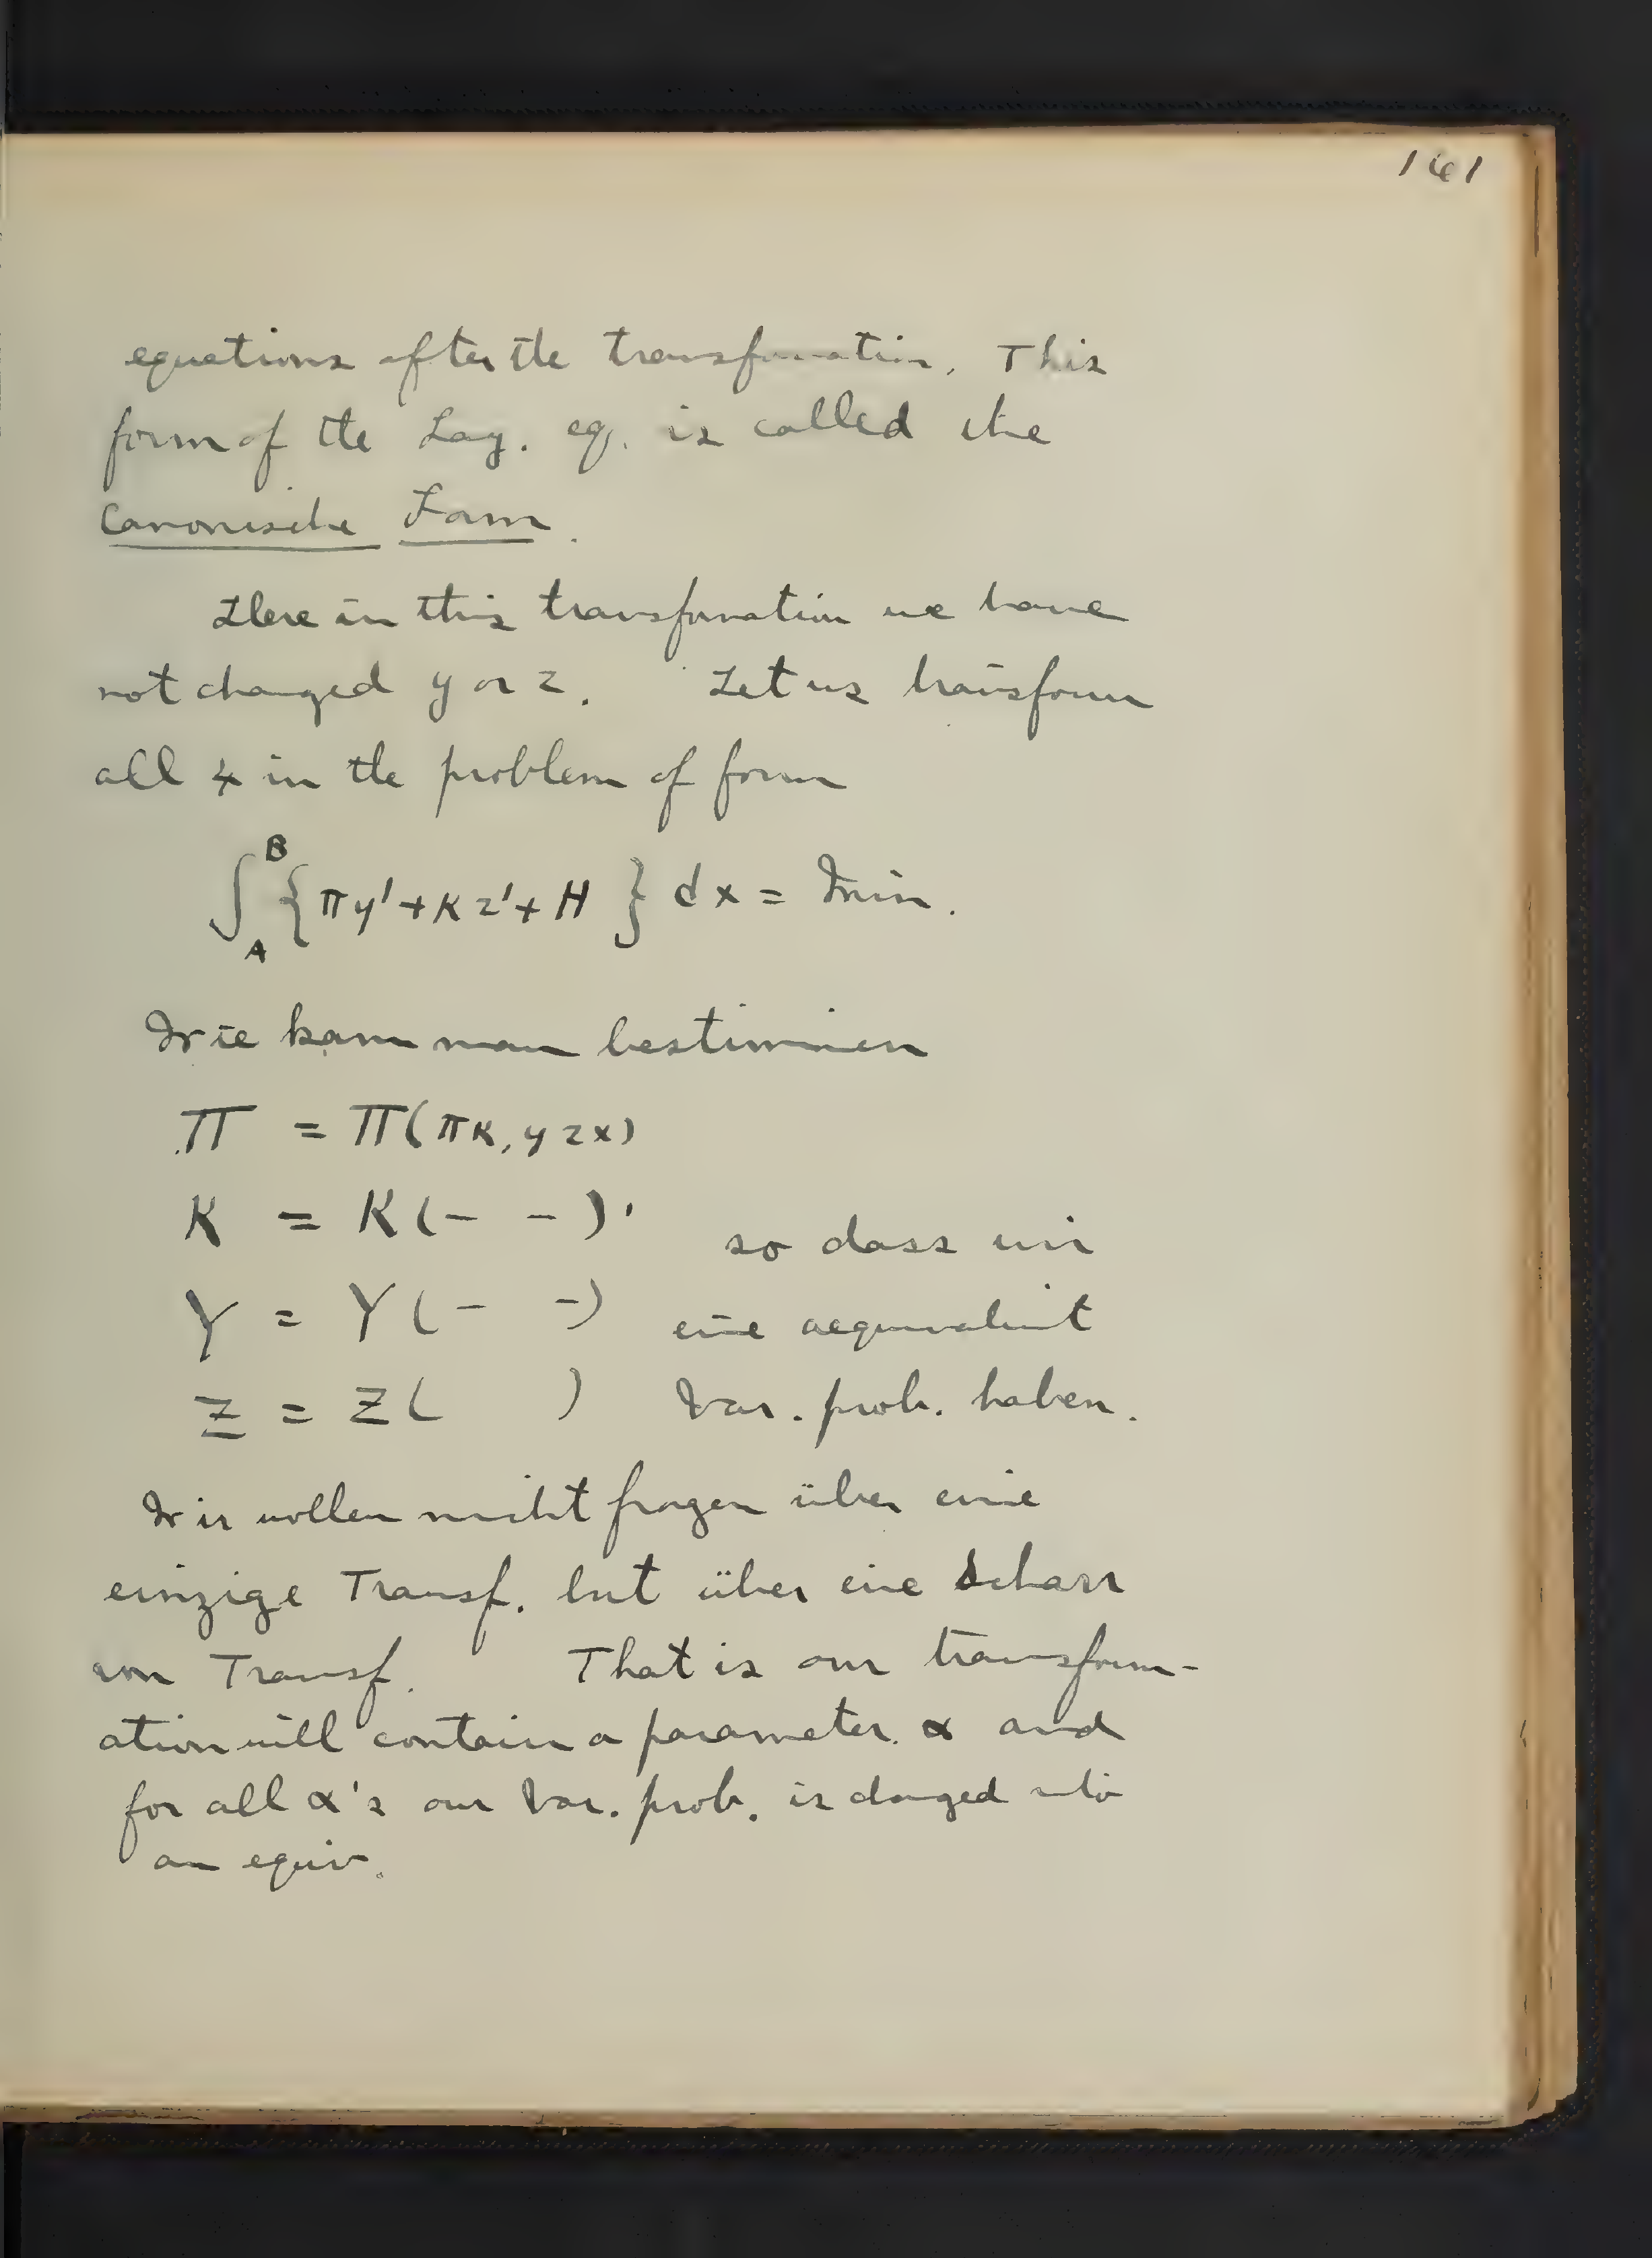 161
equations after the transformation. This
form of the Lag. eq. is called the
Canonische Form.
Here in this transformation we have
not changed y or z. Let us transform
all 4 in the problem of form
∫_A^B { πy' + κz' + H } dx = Min.
Wie kann man bestimmen
Π = Π(πκ, yzx)
K = K(- -)
Y = Y(- -)
so dass wir
eine aequivalent
Z = Z( ) Var. prob. haben.
Wir wollen nicht fragen über eine
einzige Transf. but über eine Schaar
von Transf. That is our transform-
ation will contain a parameter α and
for all α's our Var. prob. is changed into
an equiv.